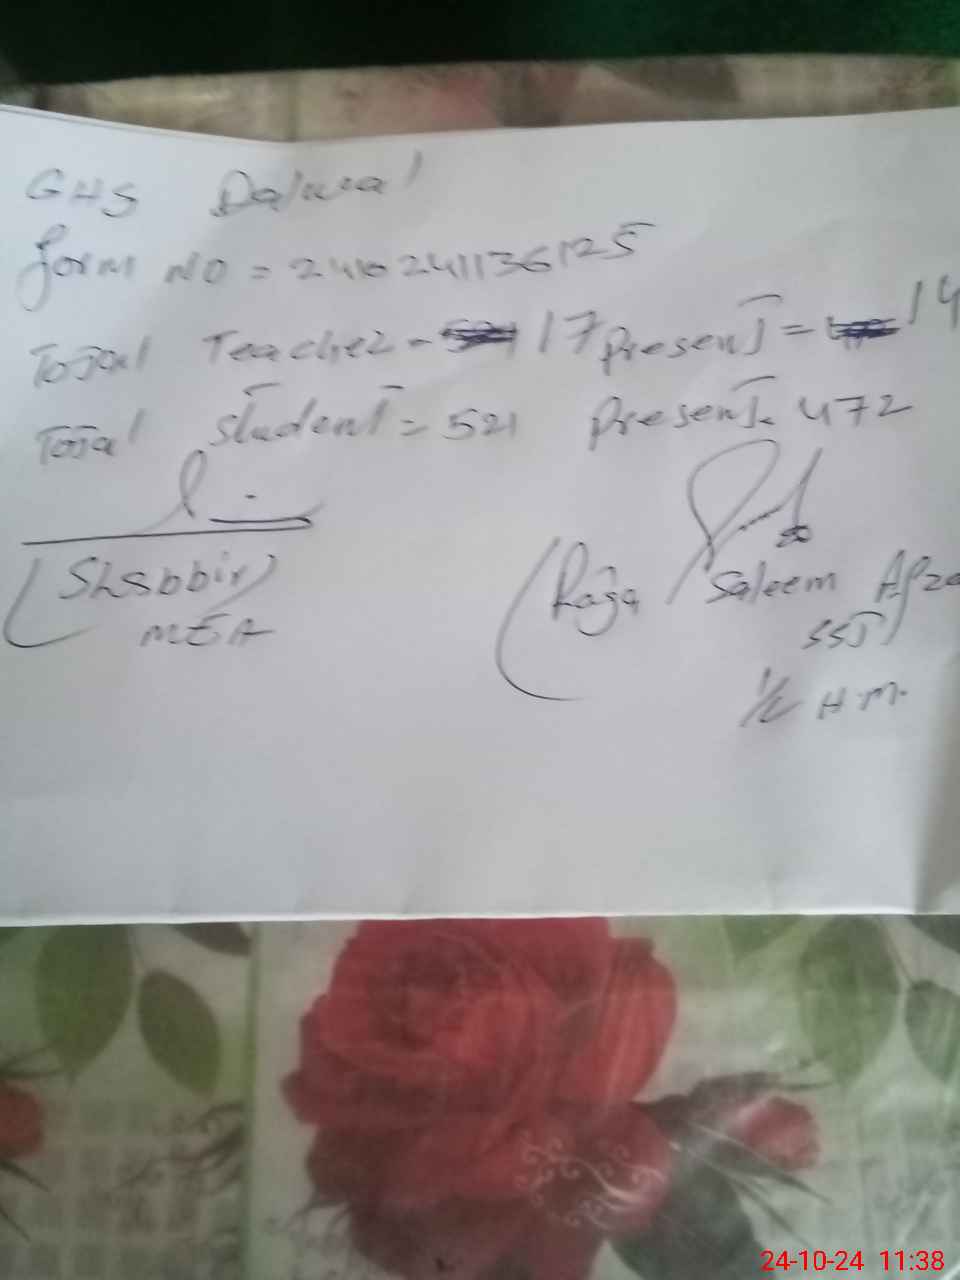 GHS Dalwal
Form NO = 2410241136125
Total Teacher - 17 Present = 14
Total Student = 521 Present 472
(Shabbir)
MEA
(Raja Saleem
SST)
I/C H.M.
24-10-24 11:38